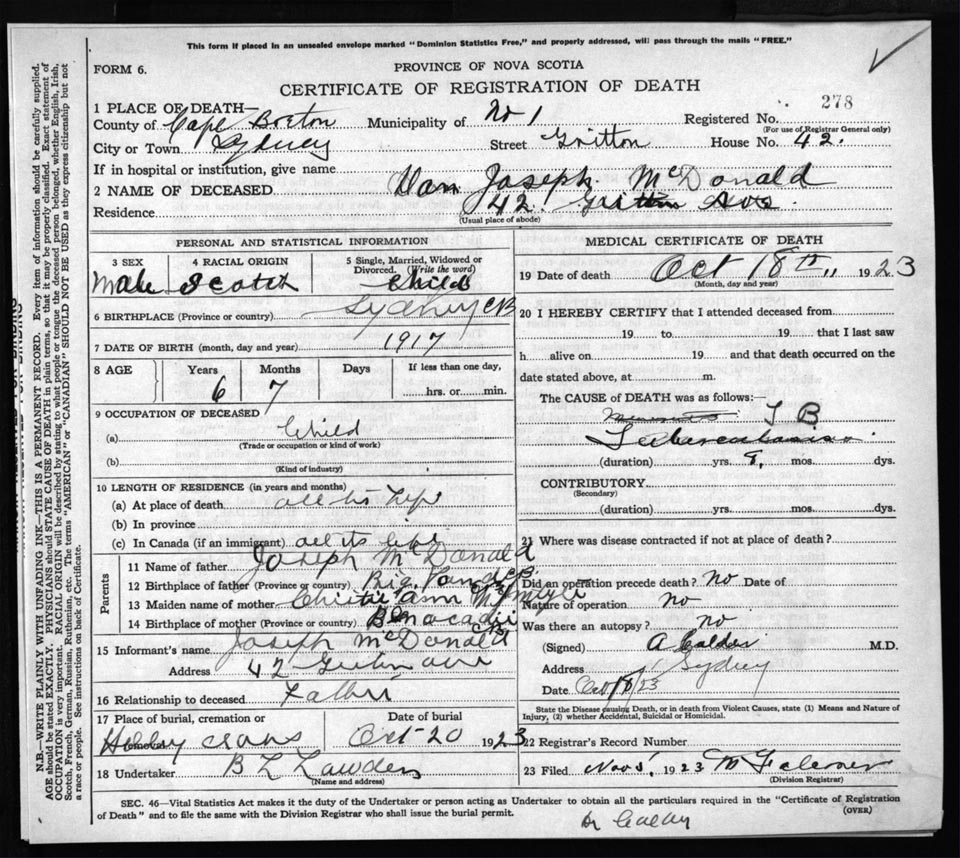 This form if placed in an unsealed envelope marked "Dominion Statistics Free," and properly addressed, will pass through the mails "FREE."
FORM 6.
PROVINCE OF NOVA SCOTIA
CERTIFICATE OF REGISTRATION OF DEATH
278
1 PLACE OF DEATH—
County of Cape Breton Municipality of No 1 Registered No.
(For use of Registrar General only)
City or Town Sydney Street Gritton House No. 42.
If in hospital or institution, give name
2 NAME OF DECEASED Dan Joseph McDonald
Residence 42. Gritton Ave
(Usual place of abode)
PERSONAL AND STATISTICAL INFORMATION
3 SEX Male
4 RACIAL ORIGIN Scotch
5 Single, Married, Widowed or Divorced. (Write the word) Child
6 BIRTHPLACE (Province or country) Sydney CB
7 DATE OF BIRTH (month, day and year) 1917
8 AGE Years Months Days If less than one day,
6 7 hrs. or min.
9 OCCUPATION OF DECEASED
(a) Child
(Trade or occupation or kind of work)
(b)
(Kind of industry)
10 LENGTH OF RESIDENCE (in years and months)
(a) At place of death all his life
(b) In province
(c) In Canada (if an immigrant) all its life
Parents
11 Name of father Joseph McDonald
12 Birthplace of father (Province or country) Big Pond CB
13 Maiden name of mother Christie Ann
14 Birthplace of mother (Province or country) Benacadie CB
15 Informant's name Joseph McDonald
Address 42
16 Relationship to deceased Father
17 Place of burial, cremation or removal Holy Cross
Date of burial Oct 20 1923
18 Undertaker B L
(Name and address)
MEDICAL CERTIFICATE OF DEATH
19 Date of death Oct 18th 1923
(Month, day and year)
20 I HEREBY CERTIFY that I attended deceased from
19 to 19 that I last saw
h alive on 19 and that death occurred on the
date stated above, at m.
The CAUSE of DEATH was as follows:—
T B
Tuberculosis
(duration) yrs. 8, mos. dys.
CONTRIBUTORY
(Secondary)
(duration) yrs. mos. dys.
21 Where was disease contracted if not at place of death?
Did an operation precede death? No Date of
Nature of operation No
Was there an autopsy? no
(Signed) A Calder M.D.
Address Sydney
Date Oct/18/23
State the Disease causing Death, or in death from Violent Causes, state (1) Means and Nature of Injury, (2) whether Accidental, Suicidal or Homicidal.
22 Registrar's Record Number
23 Filed Nov 5, 1923
(Division Registrar)
SEC. 46—Vital Statistics Act makes it the duty of the Undertaker or person acting as Undertaker to obtain all the particulars required in the "Certificate of Registration
of Death" and to file the same with the Division Registrar who shall issue the burial permit.
(OVER)
N.B.—WRITE PLAINLY WITH UNFADING INK—THIS IS A PERMANENT RECORD. Every item of information should be carefully supplied.
AGE should be stated EXACTLY. PHYSICIANS should STATE CAUSE OF DEATH in plain terms, so that it may be properly classified. Exact statement of
OCCUPATION is very important. RACIAL ORIGIN will be described by stating to what people or tongue the deceased person belonged, whether English, Irish,
Scotch, French, German, Russian, Ruthenian, etc. The terms "AMERICAN" or "CANADIAN" SHOULD NOT BE USED as they express citizenship but not
a race or people. See instructions on back of Certificate.